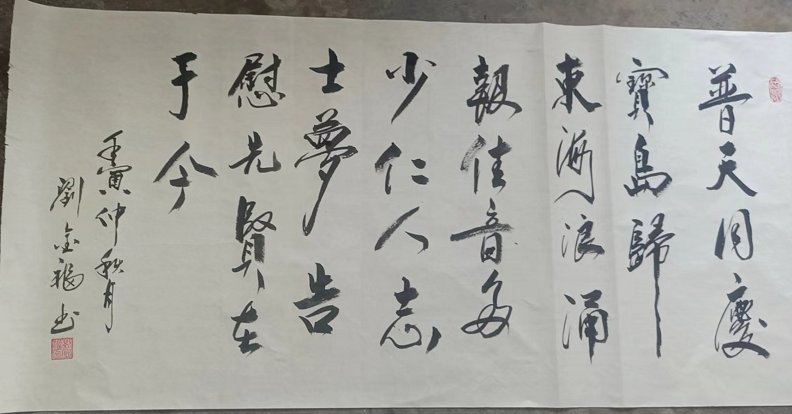 普天同慶
寶島歸
東海浪涌
報佳音多
少仁人志
士夢告
慰先賢在
于今
壬寅仲秋月
劉金福书